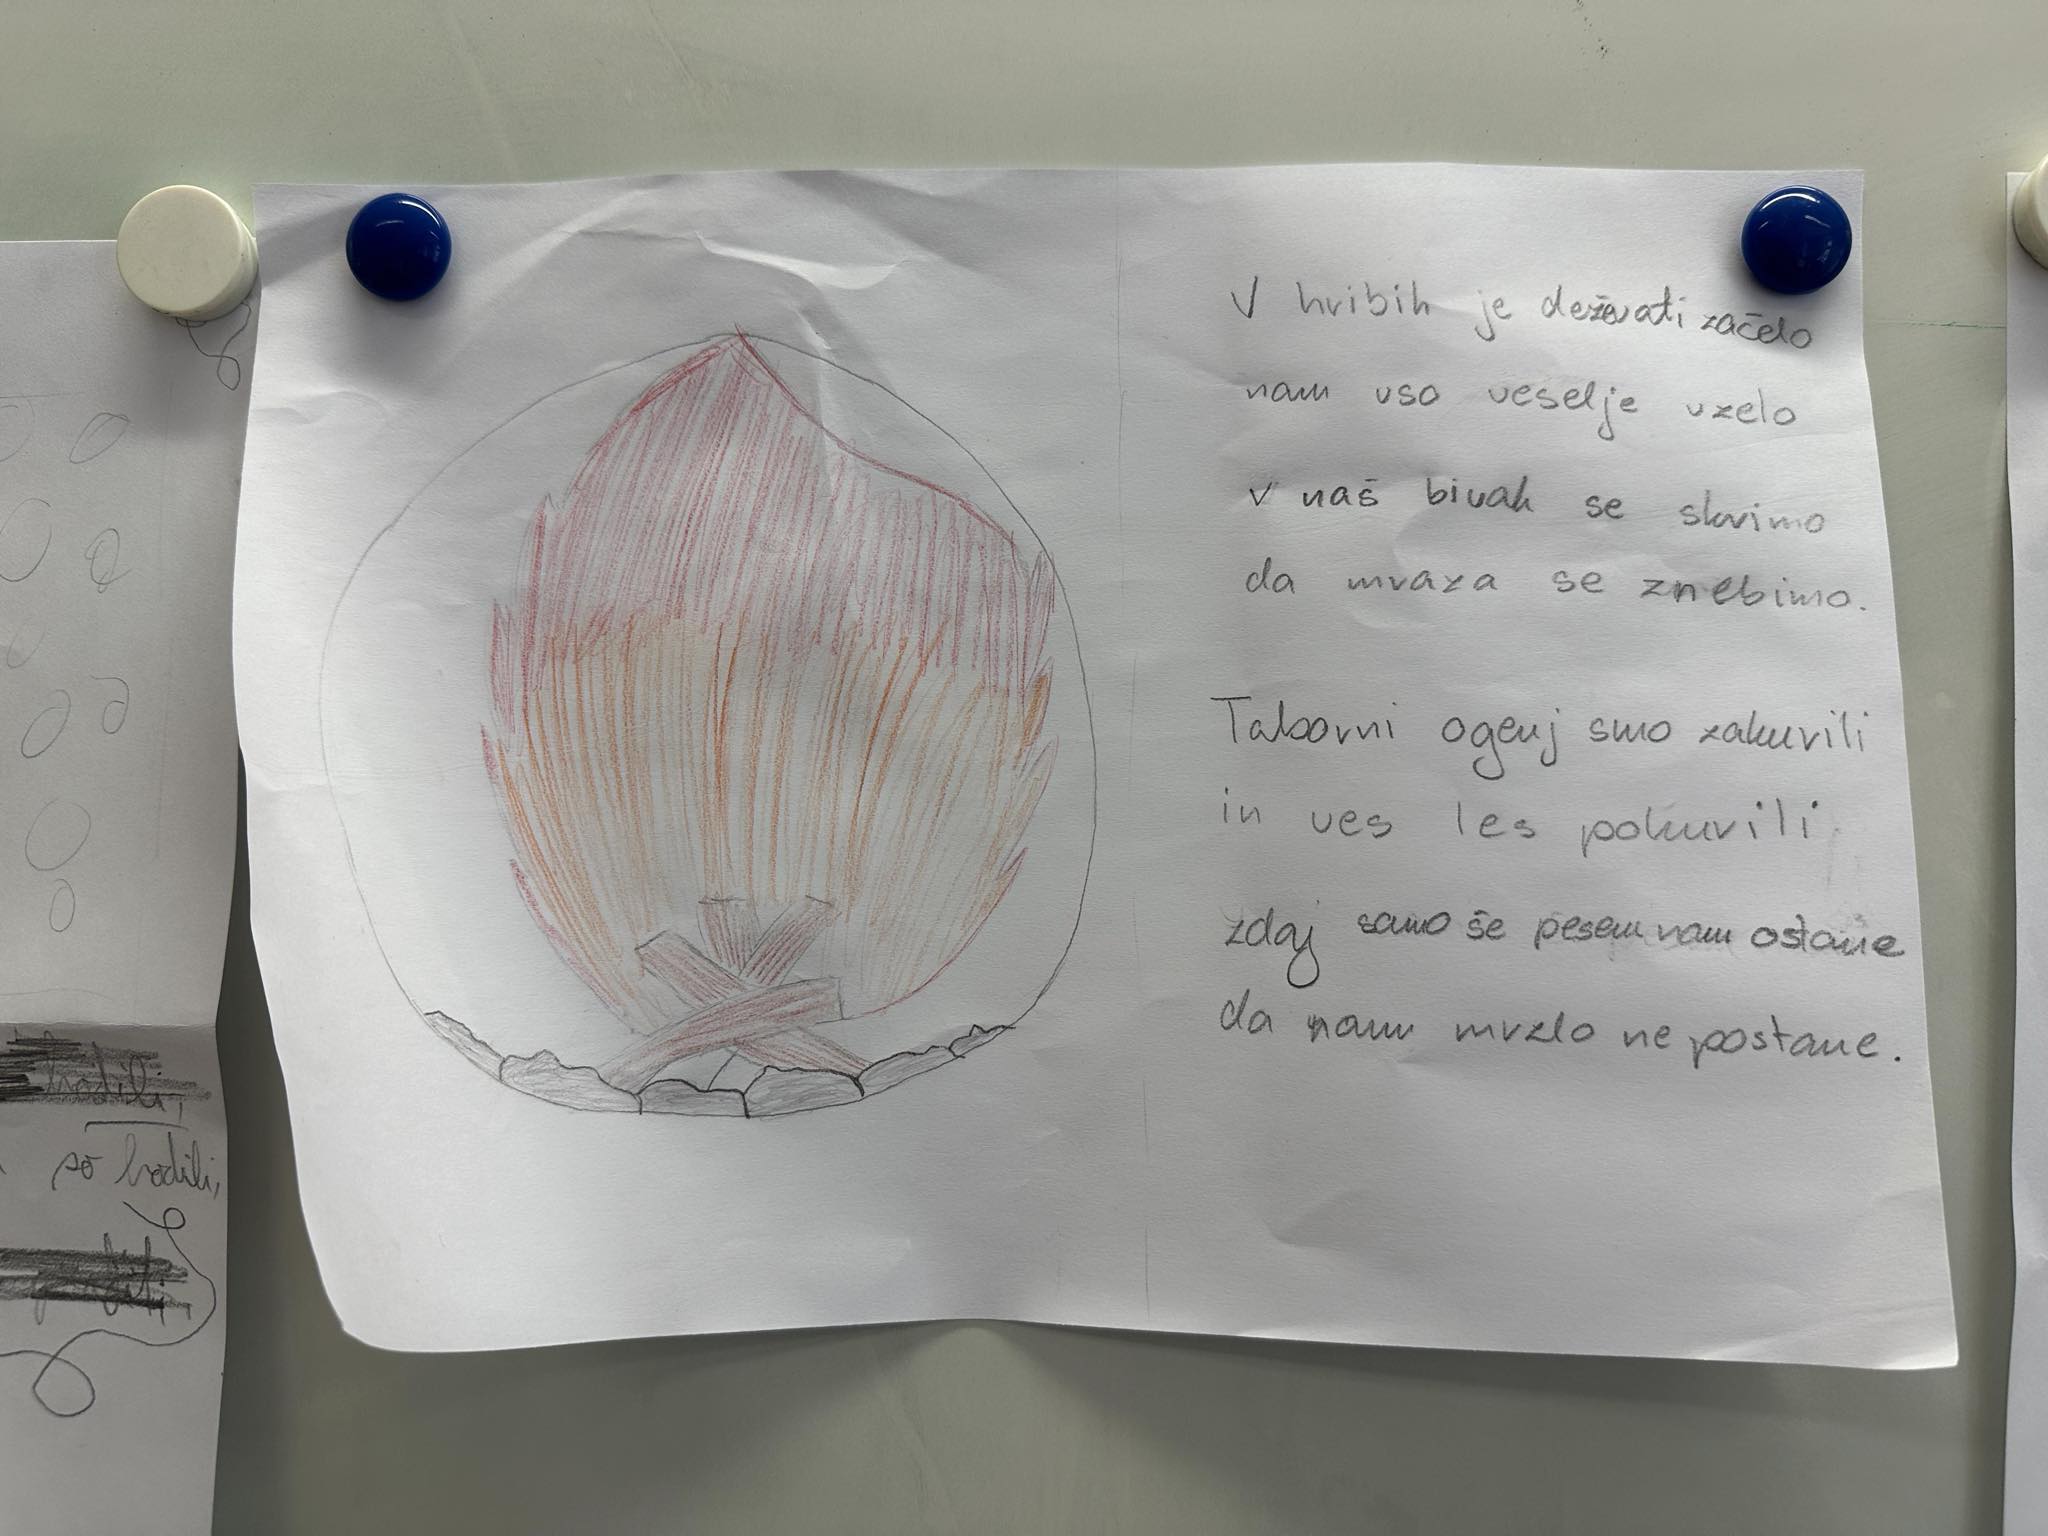 V hribih je deževati začelo
nam vso veselje vzelo
v naš bivak se skrimo
da mraza se znebimo.
Taborni ogenj smo zakurili
in ves les pokurili
zdaj samo še pesem nam ostane
da nam mrzlo ne postane.
hodili,
so hodili,